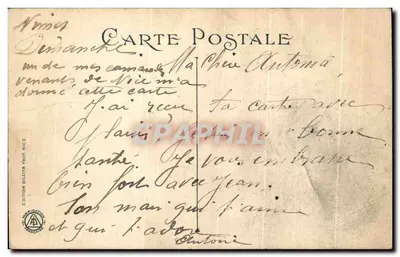 CARTE POSTALE
Nimes
Dimanche
un de mes camarades
venant de Nice m'a
donné cette carte
Ma Chère Antoma
J'ai reçu ta carte avec
plaisir bonne
santé Je vous embrasse
bien fort avec Jean.
Ton mari qui t'aime
et qui t'adore
Antoine